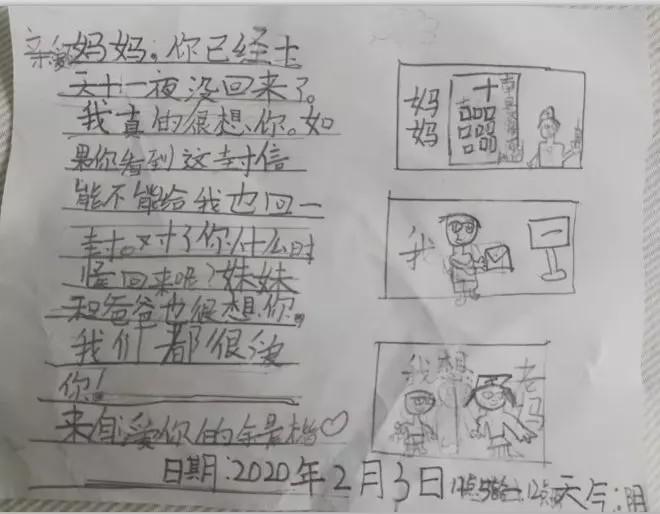 亲爱妈妈:你已经士
天十一夜没回来了。
我真的很想你。如
果你看到这封信
能不能给我也回一
封。对了你什么时
怪回来呢?妹妹
和爸爸也很想你。
我们都很爱
你!
来自爱你的
日期:2020年2月3日 天气:阴
妈妈
十
我
一
我想
老妈